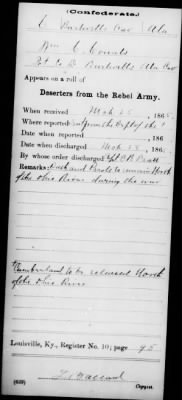 (Confederate.)
C Barbiere's Cav | Ala
Wm C Counts
Pvt Co D Barbiere's Ala Cav
Appears on a roll of
Deserters from the Rebel Army.
When received Mch 25, 1865
Where reported from the Dept of the
Where discharged 186
Date when discharged Mch 28, 1865
By whose order discharged
Remarks: Oath and Parole to remain North
of the Ohio River during the war
Cumberland to be released North
of the Ohio River
Louisville, Ky., Register No. 10; page 95
(639) Copyist.